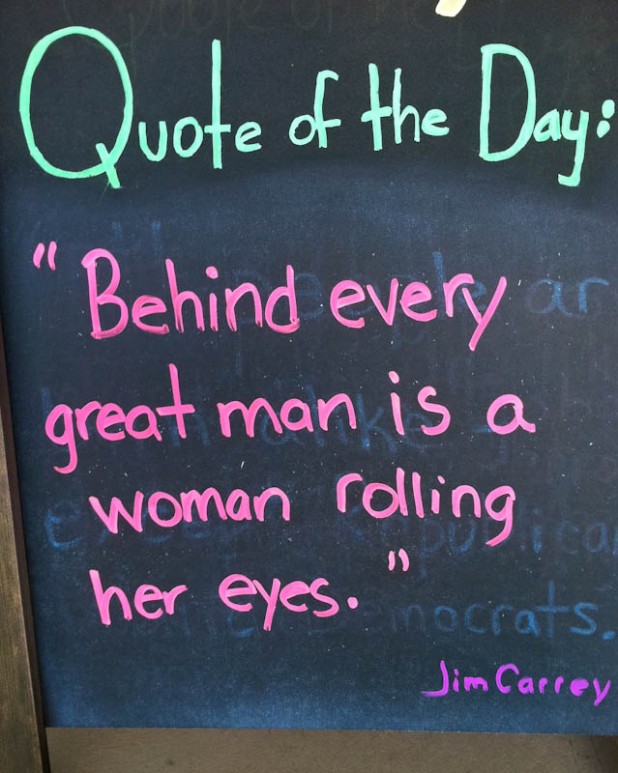 Quote of the Day:
"Behind every
great man is a
woman rolling
her eyes."
Jim Carrey